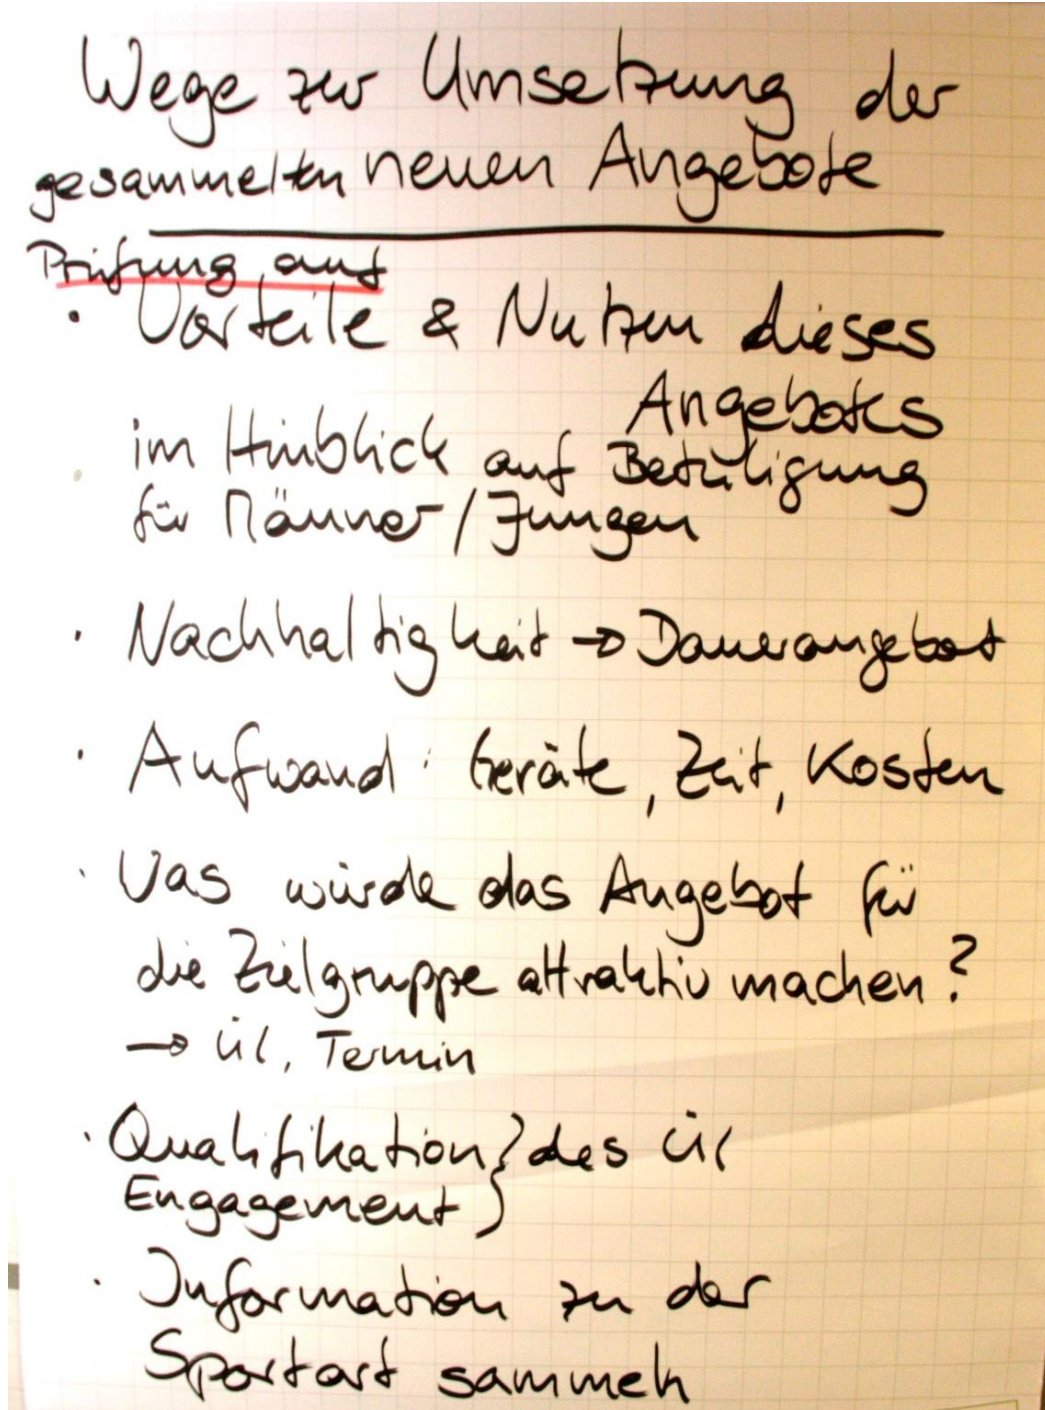 Wege zur Umsetzung der
gesammelten neuen Angebote
Prüfung auf
• Vorteile & Nutzen dieses
Angebots
im Hinblick auf Beteiligung
für Männer / Jungen
• Nachhaltigkeit → Dauerangebot
• Aufwand : Geräte, Zeit, Kosten
• Was würde das Angebot für
die Zielgruppe attraktiv machen?
→ ÜL, Termin
• Qualifikation } des ÜL
Engagement }
• Information zu der
Sportart sammeln